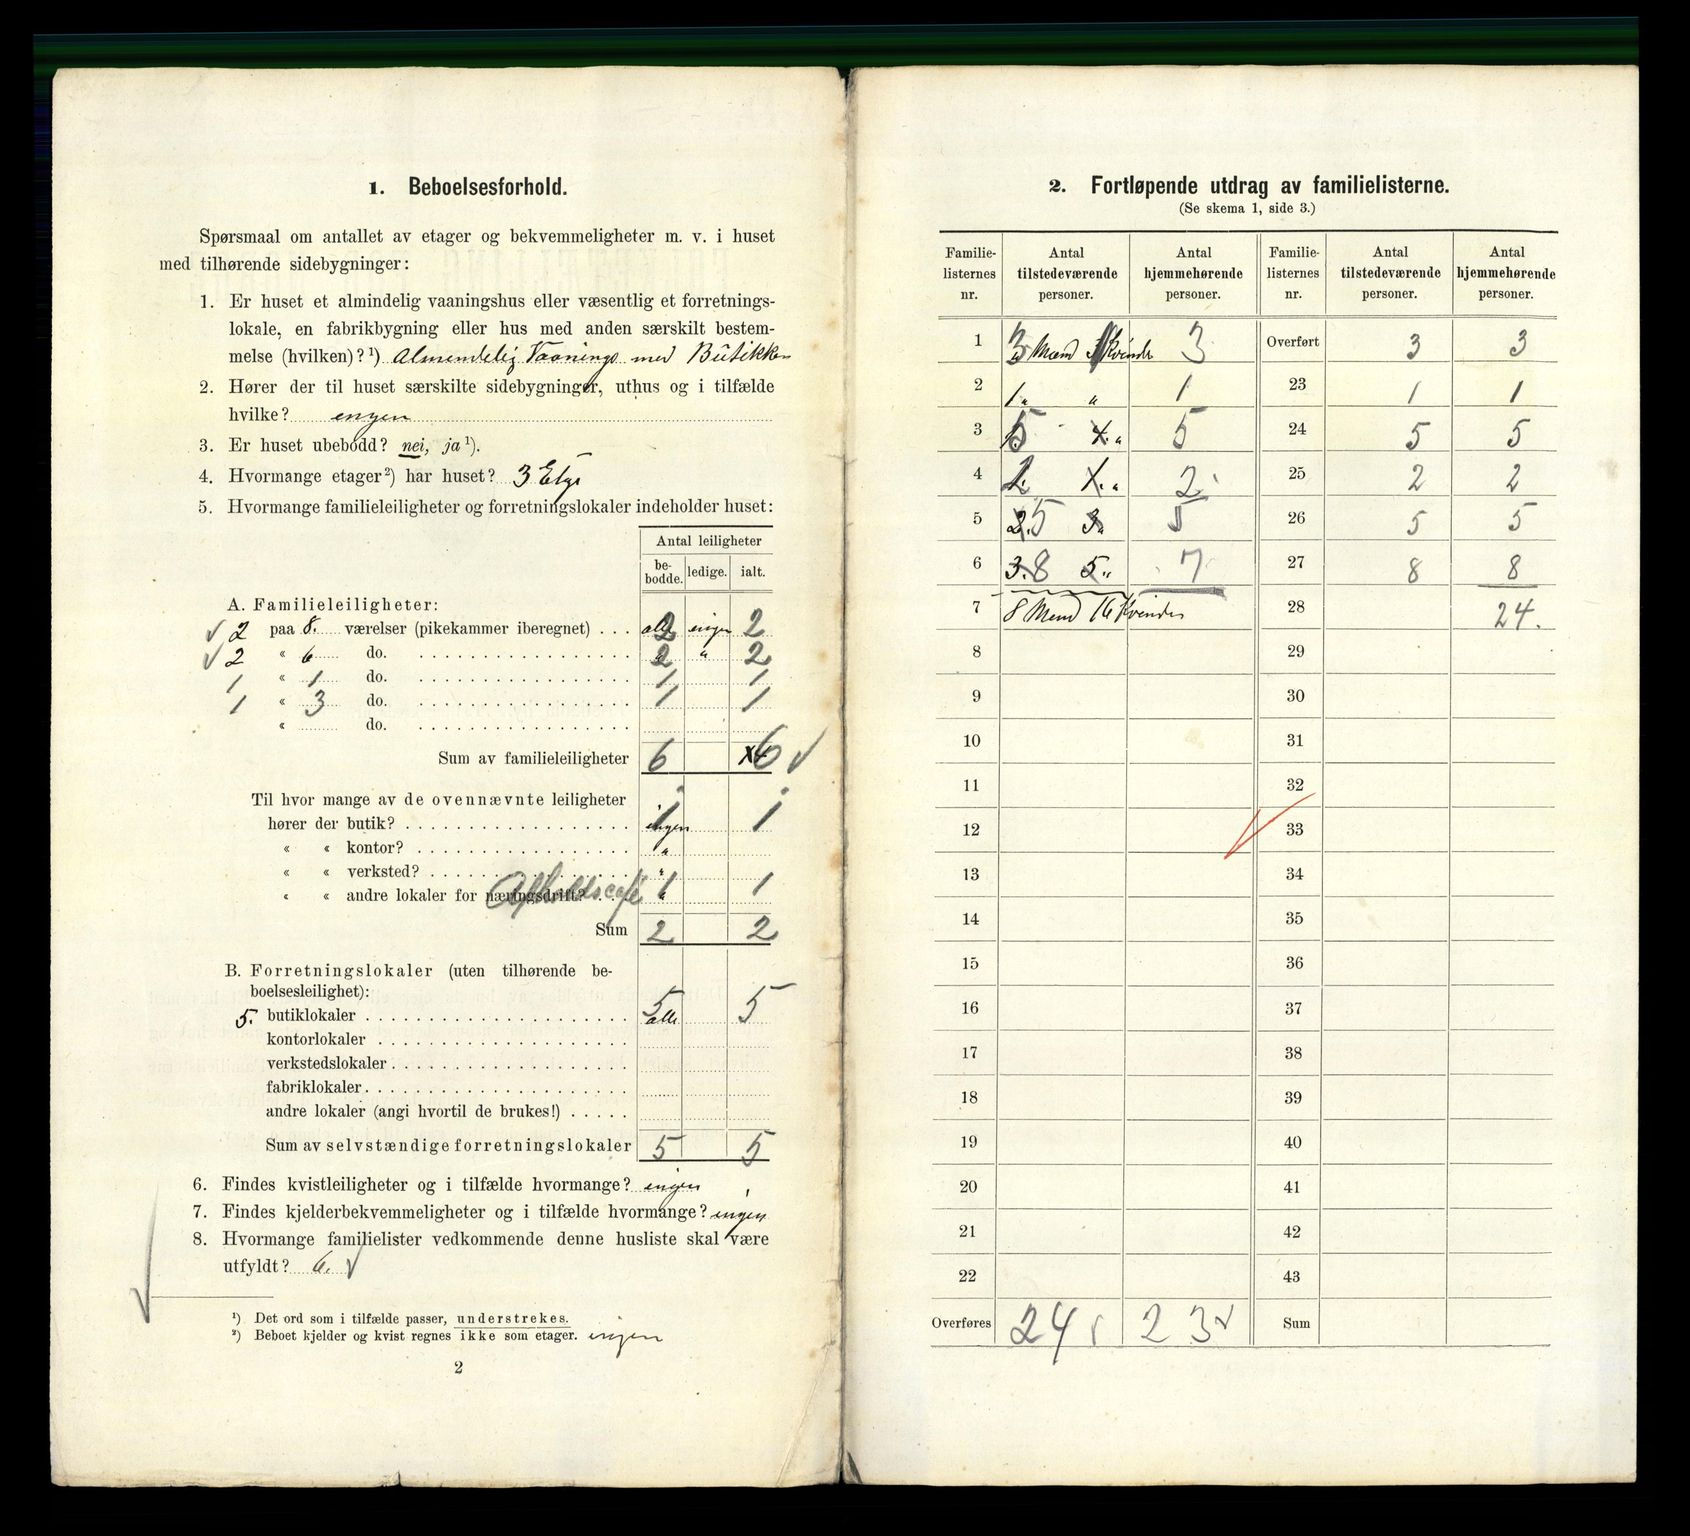 1. Beboelsesforhold.
Spørsmaal om antallet av etager og bekvemmeligheter m. v. i huset
med tilhørende sidebygninger:
1. Er huset et almindelig vaaningshus eller væsentlig et forretnings-
lokale, en fabrikbygning eller hus med anden særskilt bestem-
melse (hvilken)?¹) Almendelig Vaanings med Butikker
2. Hører der til huset særskilte sidebygninger, uthus og i tilfælde
hvilke? engen
3. Er huset ubebodd? nei, ja¹).
4. Hvormange etager²) har huset? 3 Etge
5. Hvormange familieleiligheter og forretningslokaler indeholder huset:
Antal leiligheter
be-bodde. ledige. ialt.
A. Familieleiligheter:
2 paa 8. værelser (pikekammer iberegnet) . . . 2 ingen 2
2 « 6 do. 2 " 2
1 « 1 do. 1 1
1 « 3 do. 1 1
« do.
Sum av familieleiligheter 6 6
Til hvor mange av de ovennævnte leiligheter
hører der butik? 1 1
« « kontor? "
« « verksted? "
« « andre lokaler for næringsdrift? Afholdscafé 1 1
Sum 2 2
B. Forretningslokaler (uten tilhørende be-
boelsesleilighet):
5. butiklokaler 5 alle 5
kontorlokaler
verkstedslokaler
fabriklokaler
andre lokaler (angi hvortil de brukes!)
Sum av selvstændige forretningslokaler 5 5
6. Findes kvistleiligheter og i tilfælde hvormange? ingen
7. Findes kjelderbekvemmeligheter og i tilfælde hvormange? ingen
8. Hvormange familielister vedkommende denne husliste skal være
utfyldt? 6.
¹) Det ord som i tilfælde passer, understrekes.
²) Beboet kjelder og kvist regnes ikke som etager. ingen
2
2. Fortløpende utdrag av familielisterne.
(Se skema 1, side 3.)
Familie-listernes nr. Antal tilstedeværende personer. Antal hjemmehørende personer. Familie-listernes nr. Antal tilstedeværende personer. Antal hjemmehørende personer.
1 3 Mænd Kvinder 3 Overført 3 3
2 1 " " 1 23 1 1
3 5 4 " 5 24 5 5
4 2 1 " 2 25 2 2
5 2. 5 3 " 5 26 5 5
6 3. 8 5 " 7 27 8 8
7 8 Mend 16 Kvinder 28 24.
8 29
9 30
10 31
11 32
12 33
13 34
14 35
15 36
16 37
17 38
18 39
19 40
20 41
21 42
22 43
Overføres 24 23 Sum